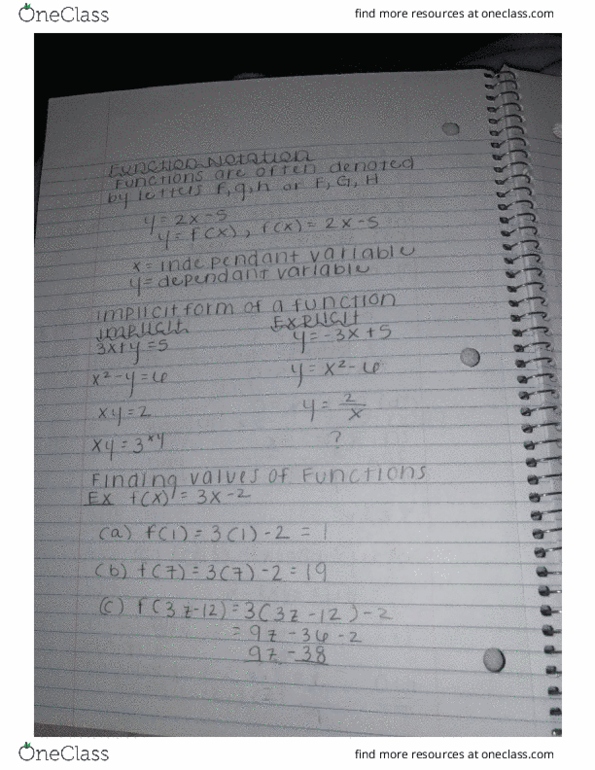 OneClass
find more resources at oneclass.com
Function Notation
Functions are often denoted
by letters f,g,h or F,G,H
y=2x-5
y=f(x), f(x)=2x-5
x=independant variable
y=dependant variable
implicit form of a function
IMPLICIT EXPLICIT
3x+y=5 y=-3x+5
x²-y=6 y=x²-6
xy=2 y=2/x
xy=3^xy ?
Finding values of Functions
Ex f(x)=3x-2
(a) f(1)=3(1)-2=1
(b) f(7)=3(7)-2=19
(c) f(3z-12)=3(3z-12)-2
=9z-36-2
9z-38
OneClass
find more resources at oneclass.com